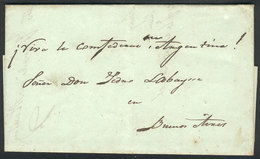 ¡Viva la Confederac.on Argentina!
Señor Don Pedro Labayse
en
Buenos Aires